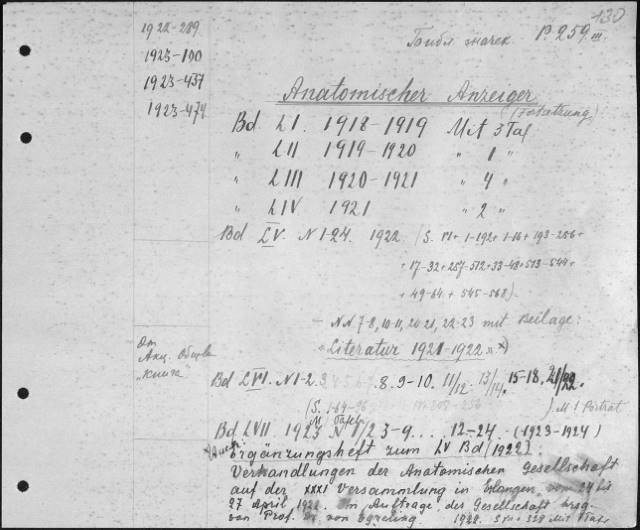 130
1922-289
Библ. P. 259 III.
1923-100
1923-437
1923-474
Anatomischer Anzeiger
(Fortsetzung)
Bd. LI. 1918-1919 Mit 3 Taf
„ LII 1919-1920 „ 1 „
„ LIII 1920-1921 „ 4 „
„ LIV 1921 „ 2 „
Bd LV. N 1-24. 1922 (S. VI+ 1-192+ 1-16+ 193-256+
+17-32+257-512+33-48+513-544+
+49-64+545-568).
- NN 7-8, 10-11, 20-21, 22-23 mit Beilage:
"Literatur 1921-1922" *)
От
Акц. Общва
„Книга"
Bd LVI. N 1-2. 3, 8. 9-10. 11/12. 13/14. 15-18. 21/22.
(S. 1-64-96 ) M 1 Porträt
M. Tafel
Bd LVII. 1923 N 1/2 3-9... 12-24. (1923-1924)
Ergänzungsheft zum LV Bd (1922):
Verhandlungen der Anatomischen Gesellschaft
auf der XXXI Versammlung in Erlangen, vom 24 bis
27 April, 1922. Im Auftrage der Gesellschaft hrsg.
von Prof. Dr. von Eggeling. 1922.